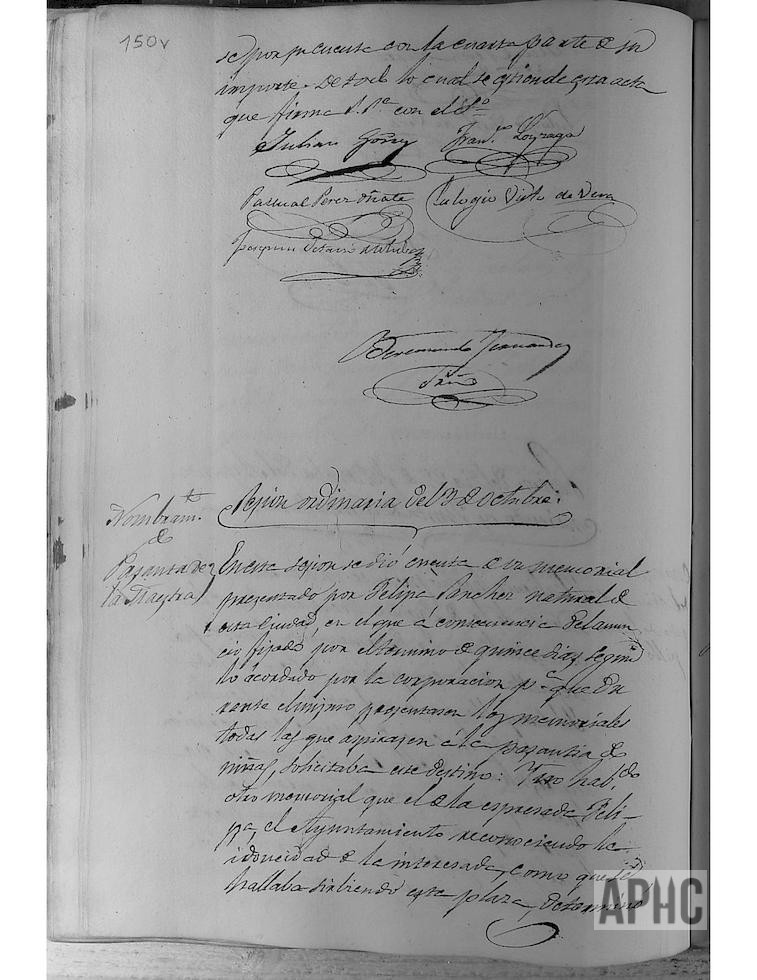 150v
se por su cuenta con la cuarta parte de su
importe. De todo lo cual se estiende esta acta
que firma S. Sª con el Sº
Julian Goñy Franco Loyzaga
Pascual Perez Oñate Eulogio Vista de Vera
Joaquin
Beremundo Fernandez
Srio
Sesion ordinaria del 9 de Octubre.
Nombramto
de
Pasanta de
la Maestra
En esta sesion se dió cuenta de un memorial
presentado por Felipa Sanchez natural de
esta Ciudad, en el que á consecuencia del anun
cio fijado por el termino de quince dias segun
lo acordado por la corporacion pª que du
rante el mismo presentasen los memoriales
todas las que aspirasen á la pasantia de
niñas, solicitaba este destino: Y no habdo
otro memorial que el de la espresada Feli-
pa, el Ayuntamiento reconociendo la
idoneidad de la interesada, como que se
hallaba sirbiendo esta plaza, determinó
APHC